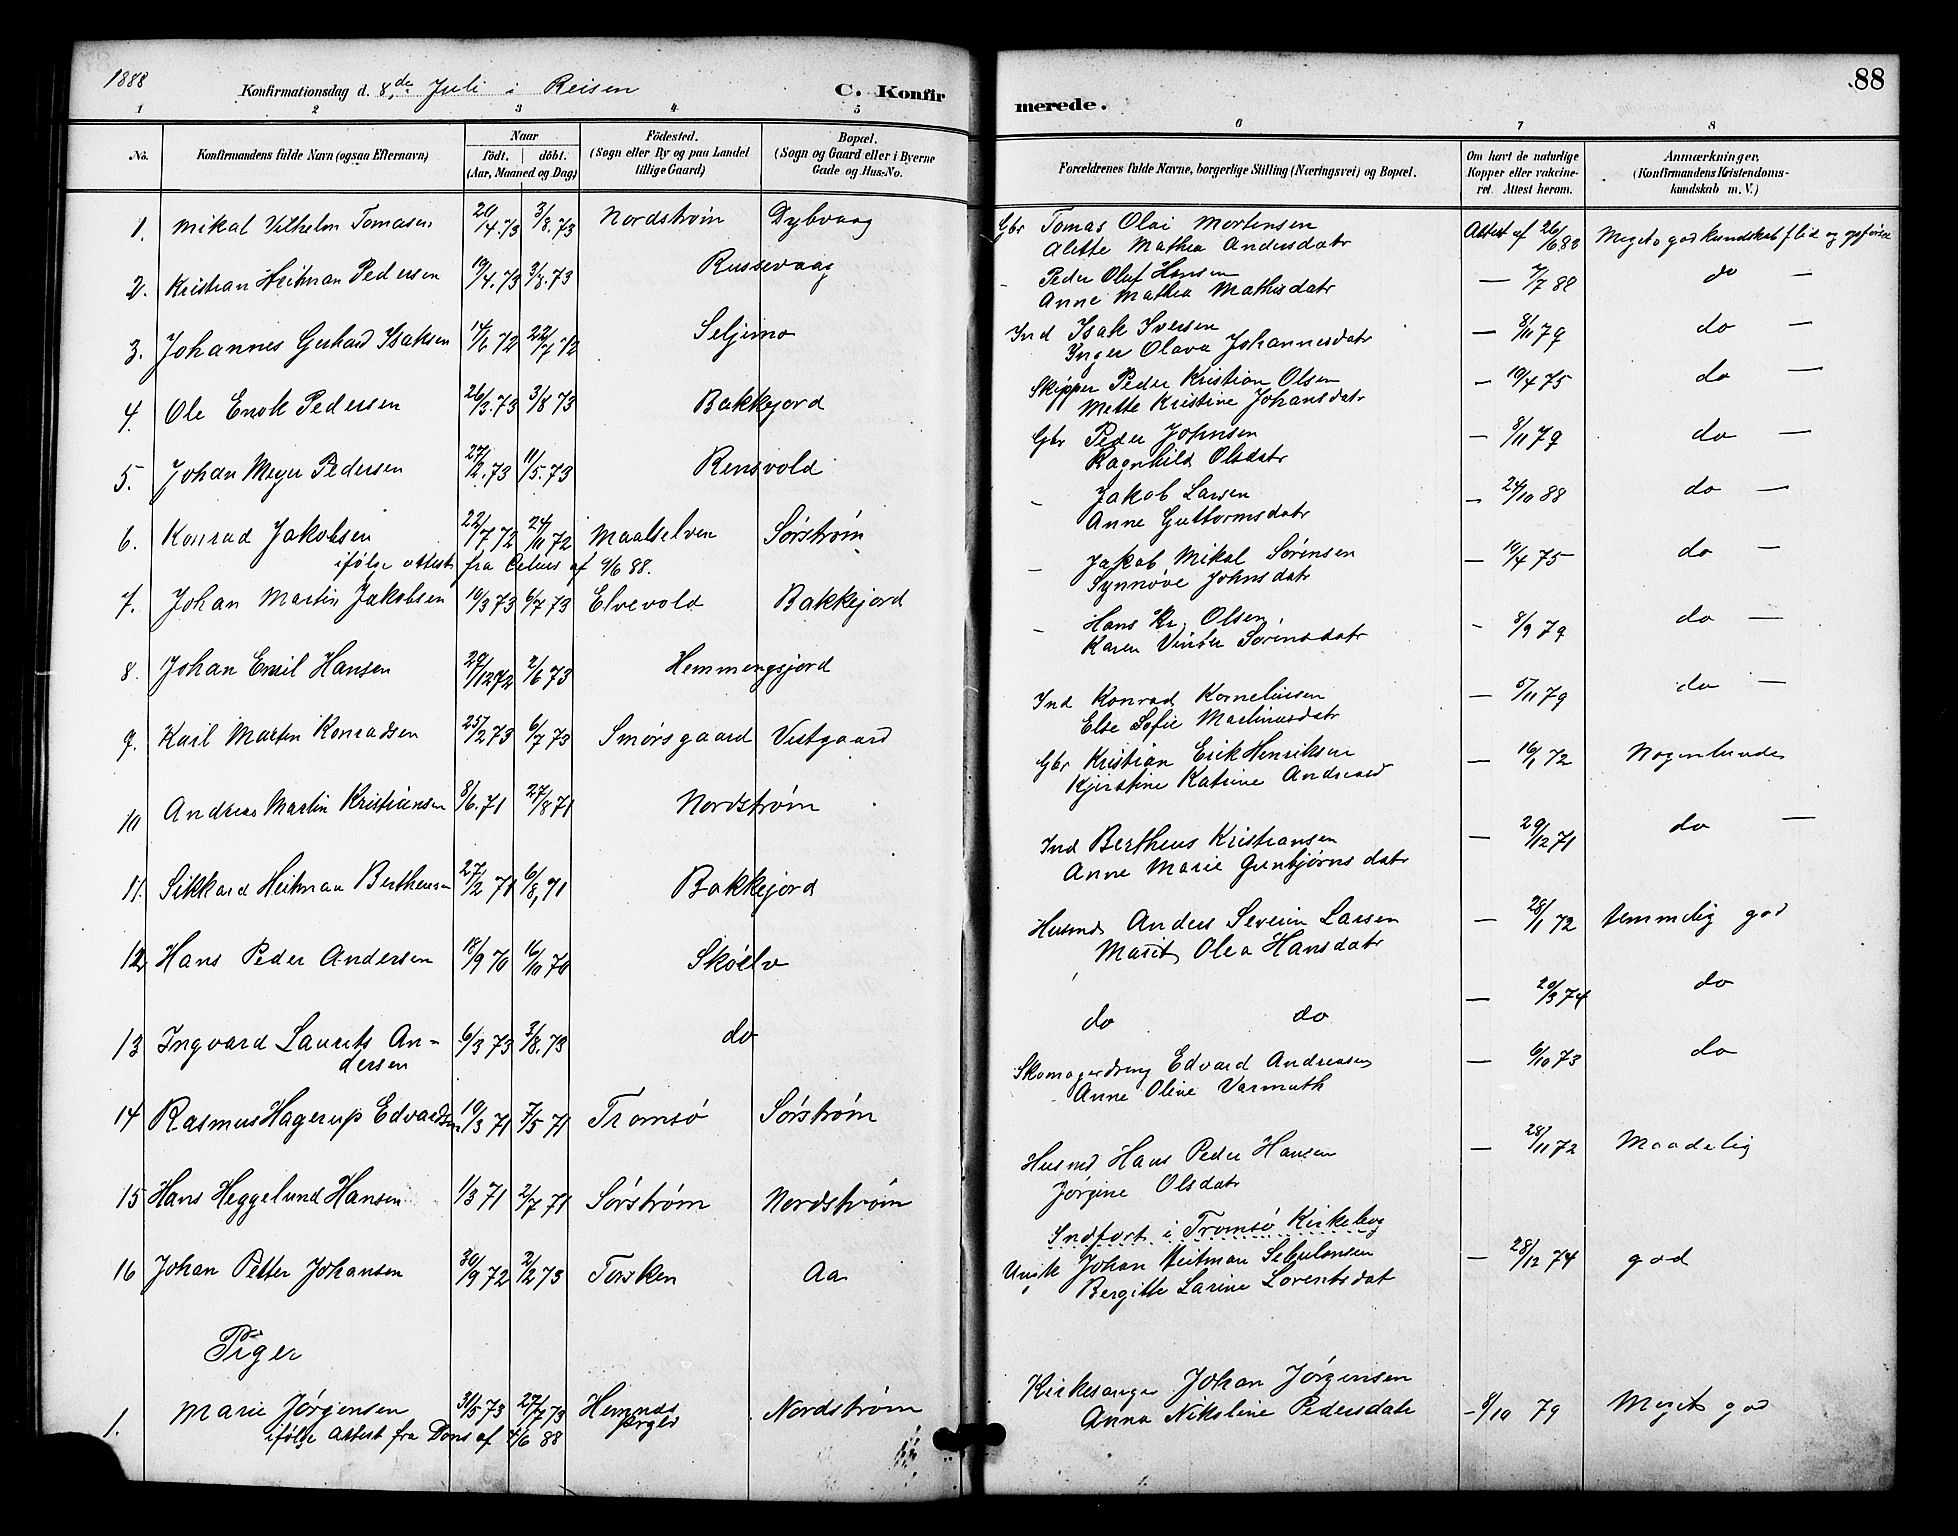 1888
Konfirmationsdag d. 8de Juli i Reisen
C. Konfirmerede.
88
1 2 3 4 5 6 7 8
No.
Konfirmandens fulde Navn (ogsaa Efternavn)
Naar
födt. döbt.
(Aar, Maaned og Dag)
Födested.
(Sogn eller By og paa Landet
tillige Gaard)
Bopæl.
(Sogn og Gaard eller i Byerne
Gade og Hus-No.
Forældrenes fulde Navne, borgerlige Stilling (Næringsvei) og Bopæl.
Om havt de naturlige
Kopper eller vakcine-
ret. Attest herom.
Anmærkninger,
(Konfirmandens Kristendoms-
kundskab m. V.)
1. Mikal Vilhelm Tomasen 20/4.73 3/8.73 Nordstrøm Dybvaag Gbr Tomas Olai Mortensen Attest af 26/6 88 Meget god kundskab flid og opførsel
Alette Mathea Andersdatr
2. Kristian Heitman Pedersen 19/4.73 3/8.73 Russevaag - Peder Oluf Hansen — 7/7 88 do —
Anne Mathea Mathisdatr
3. Johannes Gerhard Isaksen 14/6 72 22/7 72 Seljemo Ind Isak Iversen — 8/11 79 do —
Inger Olava Johannesdatr
4. Ole Enok Pedersen 26/3.73 3/8 73 Bakkejord Skipper Peder Kristian Olsen — 19/4 75 do —
Mette Kristine Johansdatr
5. Johan Meyer Pedersen 27/2.73 11/5.73 Rensvold Gbr Peder Johnsen — 8/11 79 do —
Ragnhild Olsdatr
6. Konrad Jakobsen 22/7 72 24/11 72 Maalselven Sørstrøm - Jakob Larsen — 24/10 88 do —
Anne Guttormsdatr
ifølge attest fra Celius af 9/6 88.
7. Johan Martin Jakobsen 10/3 73 6/7 73 Elvevold Bakkejord - Jakob Mikal Sørensen — 19/4 75 do —
Synnøve Johnsdatr
8. Johan Emil Hansen 29/12 72 2/6 73 Hemmengsjord - Hans Kr. Olsen - 8/9 79 do —
Karen Sørensdatr
9. Karl Martin Konradsen 25/2 73 6/7 73 Smørsgaard Vestgaard Ind Konrad Korneliussen — 5/11 79 do —
Else Sofie Martinusdatr
10 Andreas Martin Kristiansen 8/6.71 27/8 71 Nordstrøm Gbr Kristian Erik Henriksen — 16/1 72 Nogenlunde
Kjerstine Katrine Andreasd
11. Sikkard Heitman Bertheusen 27/2 71 6/8, 71 Bakkejord Ind Bertheus Kristiansen — 29/12 71 do —
Anne Marie Gunbjørnsdatr
12 Hans Peder Andersen 18/9 70 16/10 70 Skøelv Husmd Anders Severin Larsen — 28/1 72 temmelig god
Marit Olea Hansdatr
13 Ingvard Laurits An- 6/3 73 3/8.73 do do do — 20/3 74 do
dersen
14 Rasmus Hagerup Edvardsen 10/3 71 7/5 71 Tromsø Sørstrøm Skomagerdreng Edvard Andreasen — 6/10 73 do
Anne Oline Varmuth
15 Hans Heggelund Hansen 1/3 71 2/7 71 Sørstrøm Nordstrøm Husmd Hans Peder Hansen — 28/11 72 Maadelig
Jørgine Olsdatr
Indført i Tromsø Kirkebog
16 Johan Petter Johansen 30/9 72 2/2 73 Torsken Aa Ugift Johan Heitman Sebulonsen — 28/12 74 god
Bergitte Larine Lorentsdat
Piger
1. Marie Jørgensen 31/5 73 27/7 73 Hemnæs prgld Nordstrøm Kirkesanger Johan Jørgensen — 8/10 79 Meget god
Anna Nikoline Pedersdatr
ifølge attest fra Dons af 4/6 88